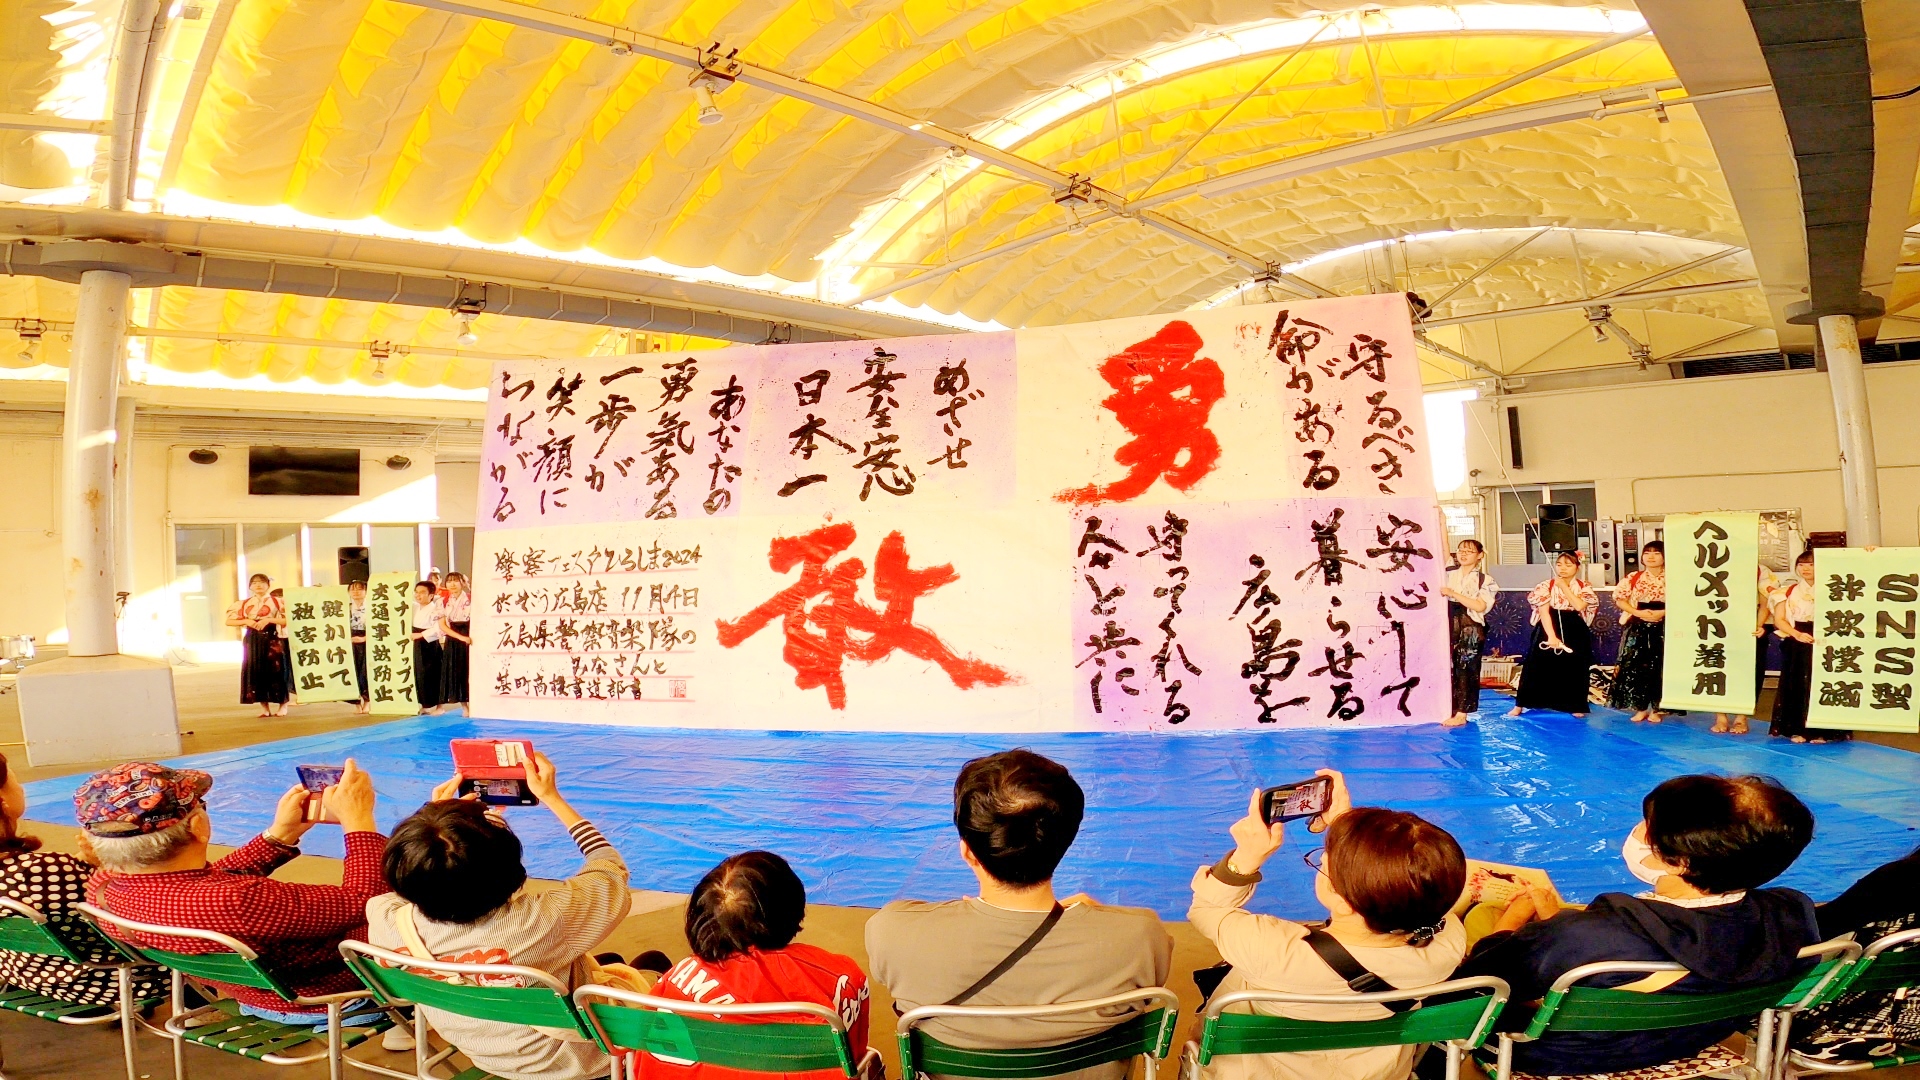 守るべき
命がある
勇
安心して
暮らせる
広島を
守ってくれる
人々と共に
敢
めざせ
安全安心
日本一
あなたの
勇気ある
一歩が
笑顔に
つながる
警察フェスタひろしま2024
そごう広島店 11月4日
広島県警察音楽隊の
みなさんと
基町高校書道部書
マナーアップで
交通事故防止
鍵かけて
被害防止
SNS型
詐欺撲滅
ヘルメット着用